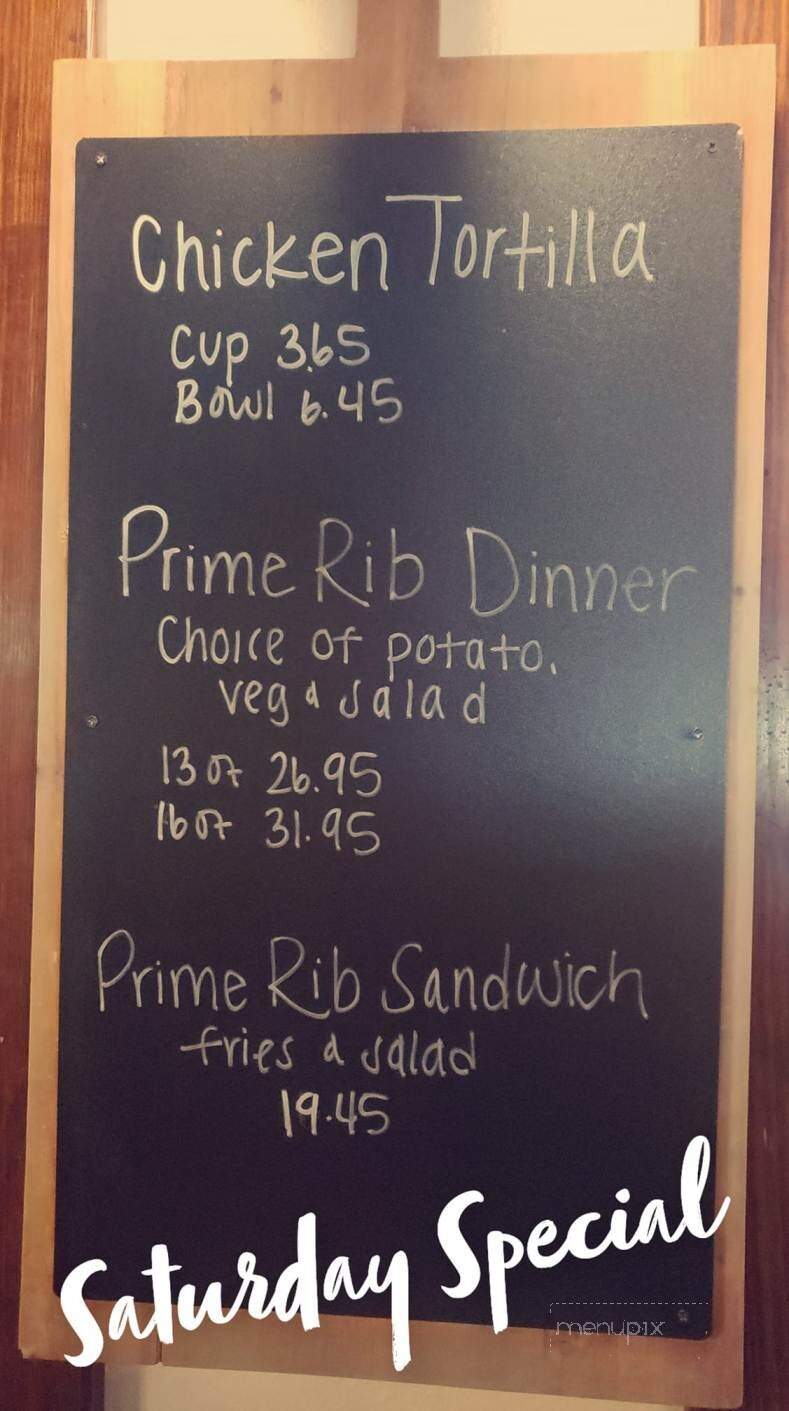 Chicken Tortilla
Cup 3.65
Bowl 6.45
Prime Rib Dinner
Choice of potato,
veg & salad
13 oz 26.95
16 oz 31.95
Prime Rib Sandwich
fries & salad
19.45
Saturday Special
menupix